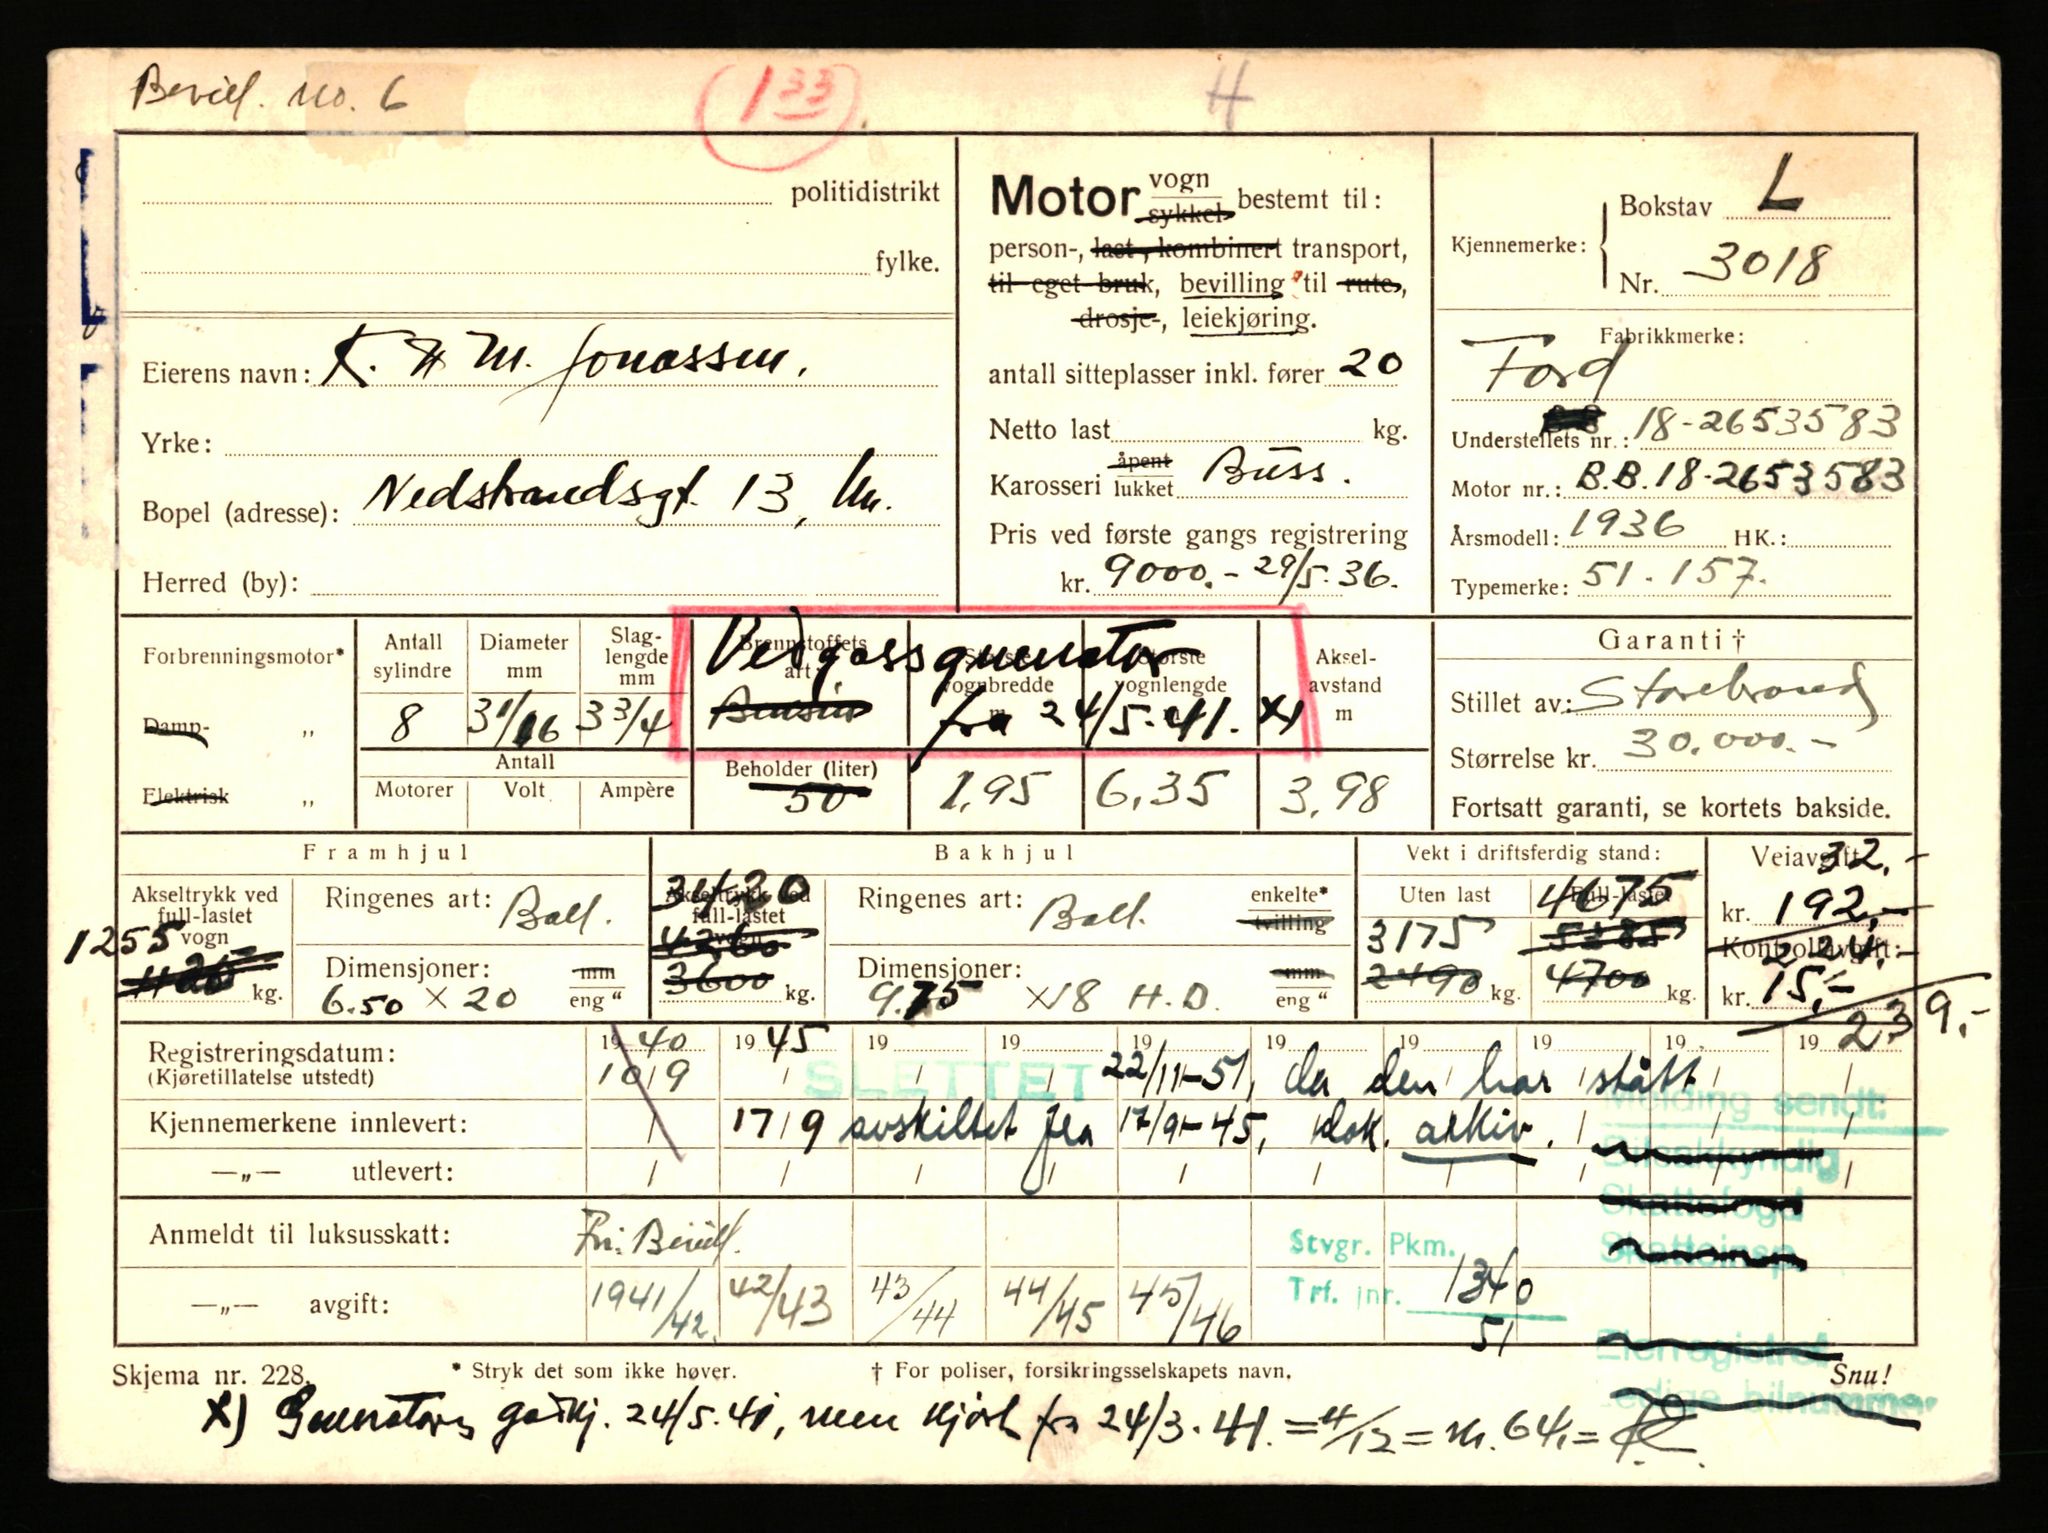 Bevill. no. 6
133
H
politidistrikt
fylke.
Eierens navn: K. H M. Jonassen.
Yrke:
Bopel (adresse): Nedstrandsgt. 13,
Herred (by):
Motor vogn
sykkel bestemt til:
person-, last-, kombinert transport,
til eget bruk, bevilling til rute,
drosje-, leiekjøring.
antall sitteplasser inkl. fører 20
Netto last kg.
Karosseri åpent
lukket Buss.
Pris ved første gangs registrering
kr. 9000.- 29/5-36.
Kjennemerke:
Bokstav L
Nr. 3018
Fabrikkmerke:
Ford
Understellets nr.: 18-2653583
Motor nr.: B.B.18-2653583
Årsmodell: 1936 HK.:
Typemerke: 51-157.
Forbrenningsmotor*
Damp- „
Elektrisk „
Antall sylindre
8
Diameter mm
3 1/16
Slag-
lengde
mm
3 3/4
Antall
Motorer Volt Ampère
Brennstoffets art
Vedgassgenerator
Bensin fra 24/5-41. x)
Beholder (liter)
50
Største vognbredde m
1,95
Største vognlengde
6,35
Aksel-
avstand
m
3,98
Garanti †
Stillet av: Storebrand
Størrelse kr. 30.000.-
Fortsatt garanti, se kortets bakside.
Framhjul
Akseltrykk ved
full-lastet
vogn
1255
1120 kg.
Ringenes art: Ball.
Dimensjoner: mm
6.50 × 20 eng "
Bakhjul
3420
Akseltrykk ved
full-lastet
vogn
4260
3600 kg.
Ringenes art: Ball. enkelte*
tvilling
Dimensjoner: mm
9.75 ×18 H.D. eng "
Vekt i driftsferdig stand:
Uten last
3175
2490 kg.
Full-lastet
4675
5385
4700 kg.
Veiavgift
32,-
kr. 192,-
Kontrollavgift:
224.-
kr. 15,-
239,-
Registreringsdatum: 1940 1945 19 19 19 19 19 19 19 19
(Kjøretillatelse utstedt) 10/9 SLETTET 22/11-51, da den har stått
Kjennemerkene innlevert: 17/9 avskiltet fra 17/9-45, dok. arkiv.
—„— utlevert:
Anmeldt til luksusskatt: Fri. Bevill.
—„— avgift: 1941/42. 42/43 43/44 44/45 45/46
Stvgr. Pkm.
Trf. jnr. 1340
51
Melding sendt:
Bilsakkyndig
Skattefogd
Skatteinsp.
Eierregistret
Ledige bilnummer
Skjema nr. 228.
* Stryk det som ikke høver.
† For poliser, forsikringsselskapets navn.
Snu!
x) Generatoren godkj. 24/5-41, men kjørt fra 24/3-41. = 4/12 = kr. 64,=